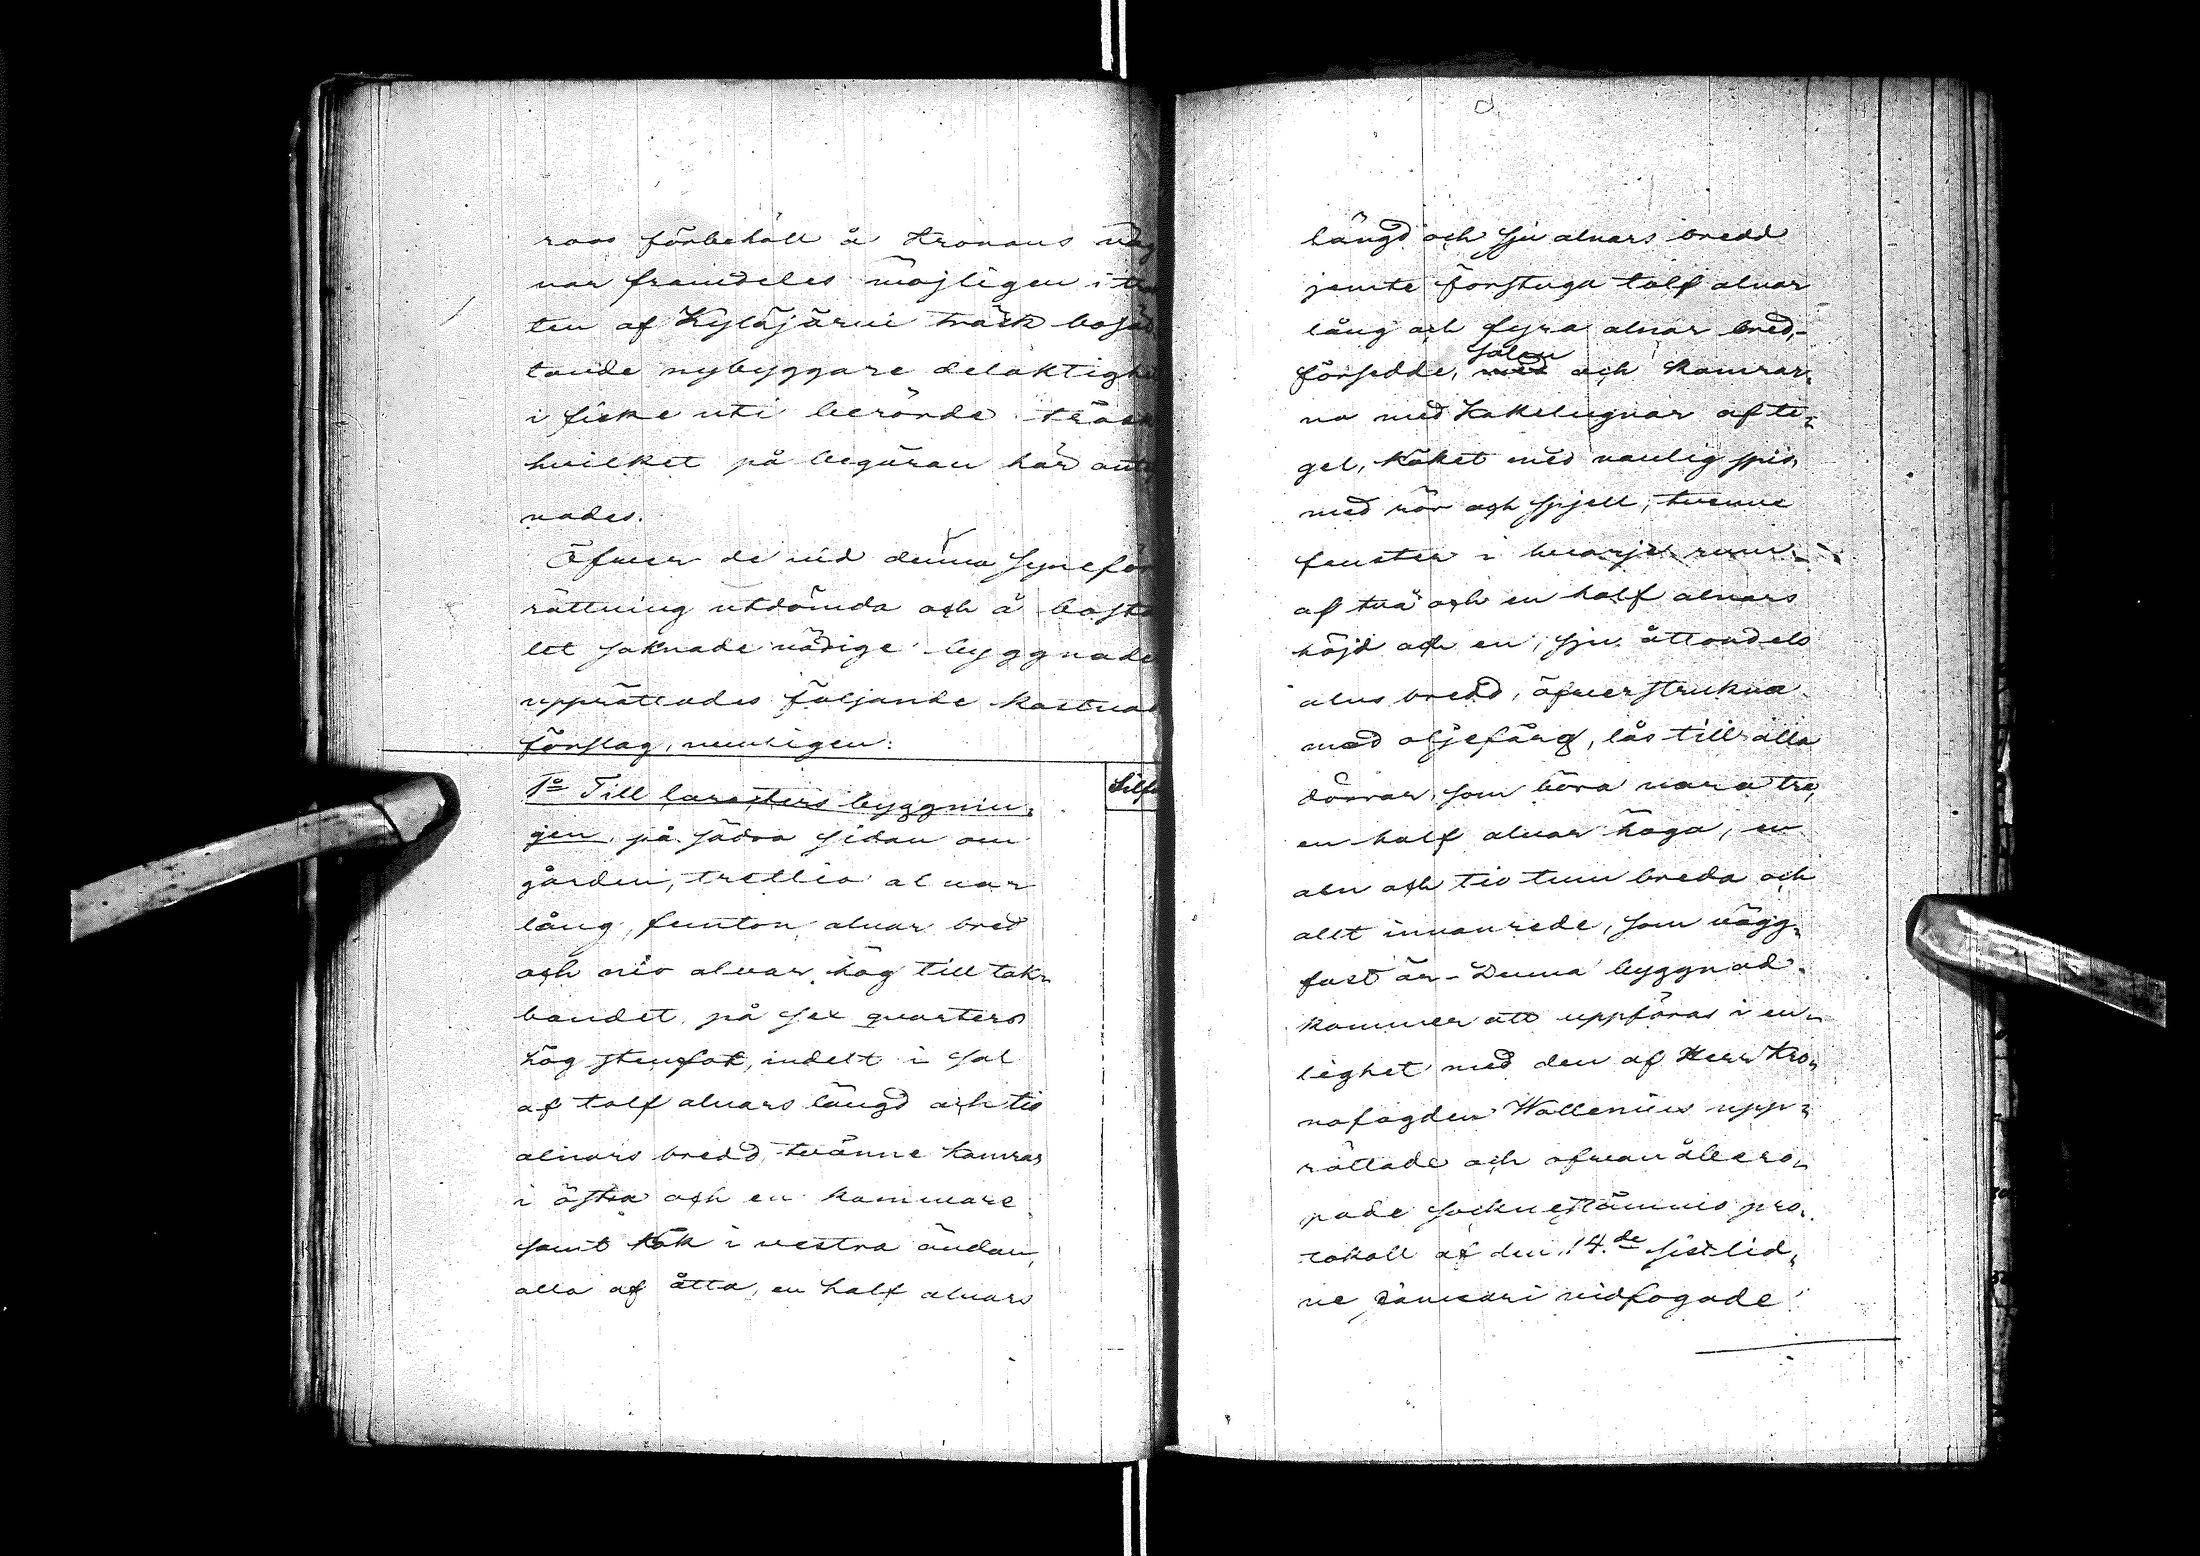 roos förbehåll å Kronans väg
nar framdeles möjligen i tra
ten af Kyläjärvi träsk bosät
tande nybyggare delaktighe
i fiske uti berörde träsk
hvilket på begäran här antk
nades.
Öfver de vid denna Syneför
rättning utdömda och å boste
let saknade nödige byggnade
upprättades följande kostnad
förslag, nemligen:
1o Till karakters byggnin,
Silfv
gen, på södra sidan om
gården, trettio alnar
lång, femton alnar bred
och nio alnar hög till tak,
bandet, på sex quarters
hög stenfot, indelt i sal
af tolf alnars längd och tio
alnars bredd, tvänne kamrar
i östra och en kammare
samt Kök i vestra ändan,
alla af åtta, en half alnars
längd och sju alnars bredd
jemte förstuga tolf alnar
lång och fyra alnar bred,
salen
försedde, med och kamrar,
na med Kakelugnar af te,
gel, Köket med vanlig spis,
med rör och spjell, tvenne
fenster i hvarje rum
af två och en half alnars
höjd och en, sju åttondels
alns bredd, öfverstrukna
med oljefärg, lås till alla
dörrar, som böra vara tre,
en half alnar höga, en
aln och tio tum breda och
allt innanrede, som vägg,
fast är - Denna byggnad
kommer att uppföras i en,
lighet med den af Herr Kro,
nofogden Wallenius upp,
rättade och ofvanåbero,
pade Socknestämnis pro,
tokoll af den 14.de sistlid,
ne Januari vidfogade